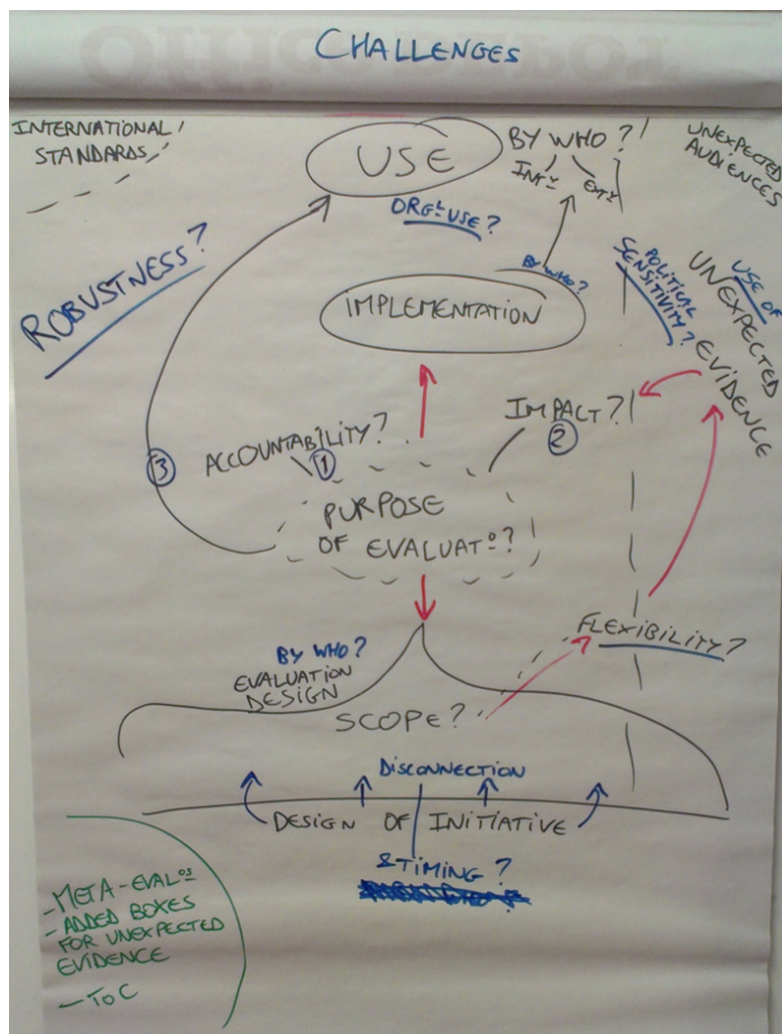 CHALLENGES
INTERNATIONAL
STANDARDS
USE
BY WHO?
INT.Y
EXT.Y
UNEXPECTED
AUDIENCES
ORG.L USE?
ROBUSTNESS?
BY WHO?
IMPLEMENTATION
POLITICAL
SENSITIVITY?
USE OF
UNEXPECTED
EVIDENCE
ACCOUNTABILITY?
1
IMPACT?
2
3
PURPOSE
OF EVALUATO?
FLEXIBILITY?
BY WHO?
EVALUATION
DESIGN
SCOPE?
DISCONNECTION
DESIGN OF INITIATIVE
& TIMING?
- META-EVALOS
- ADDED BOXES
FOR UNEXPECTED
EVIDENCE
- TOC